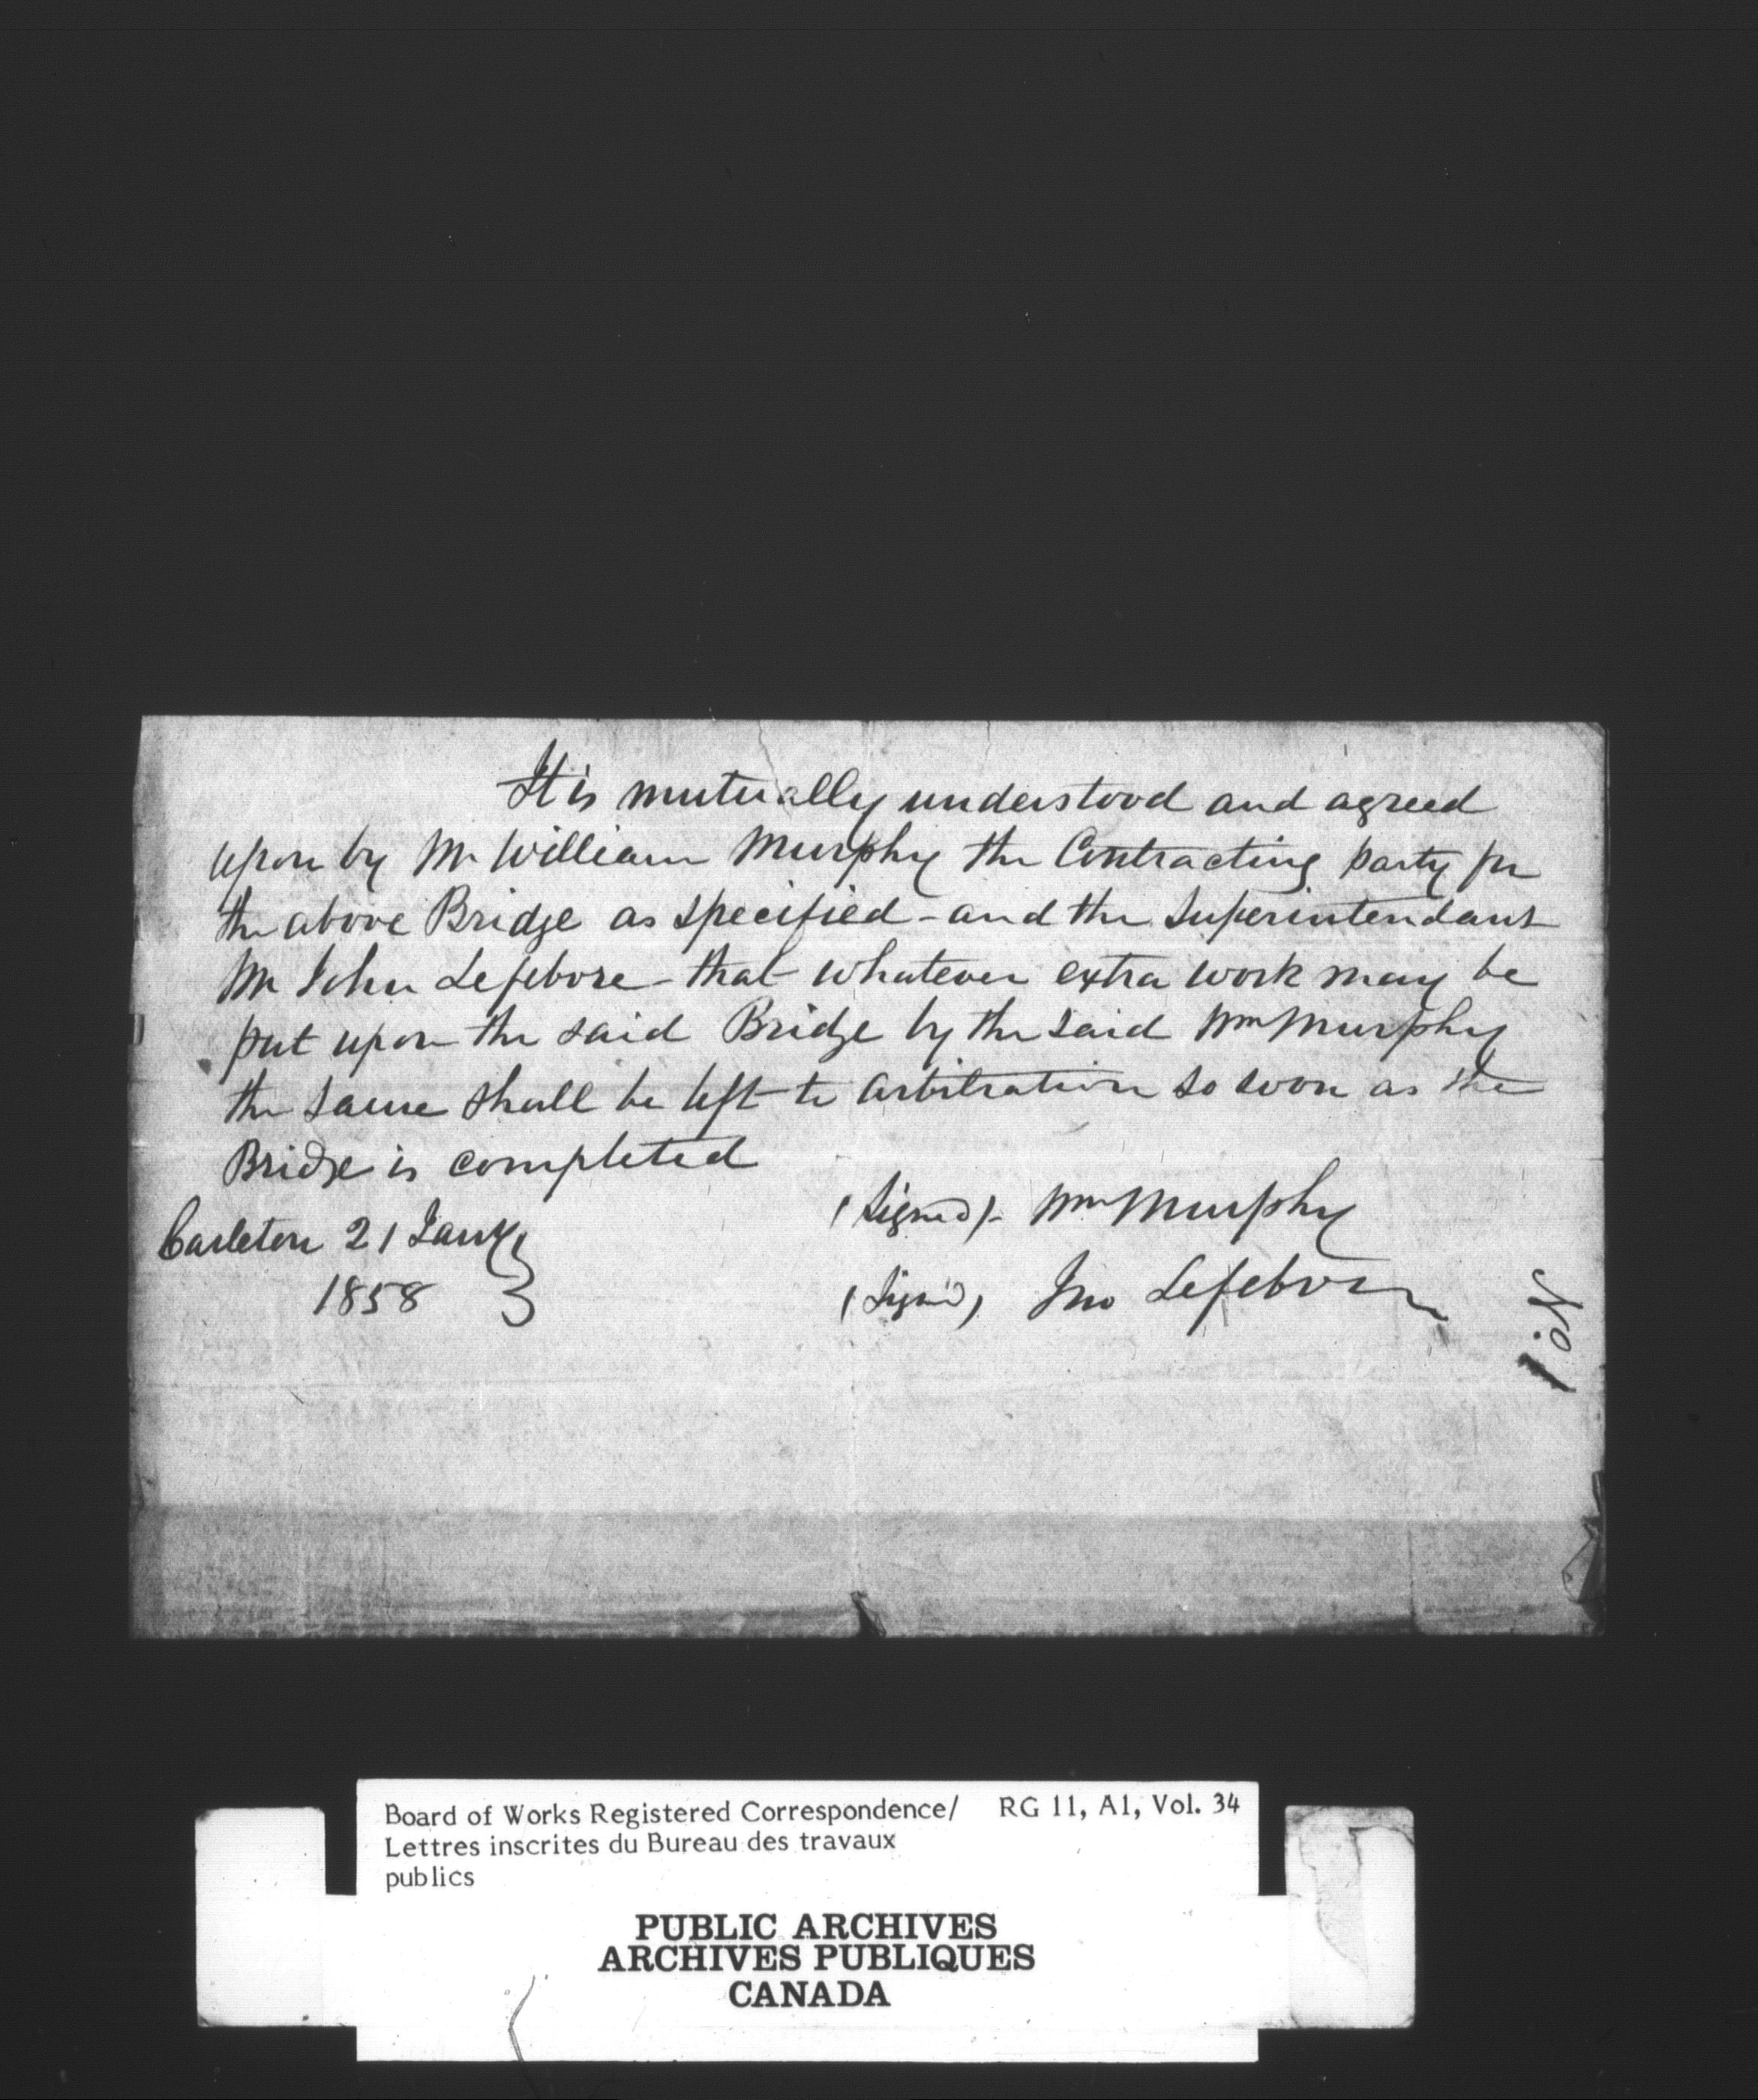 It is mutually understood and agreed
upon by Mr William Murphy the Contracting party for
the above Bridge as specified - and the Superintendant
Mr John Lefebvre - that whatever extra work may be
put upon the said Bridge by the said Wm Murphy
the same shall be left to arbitration so soon as the
Bridge is completed
Carleton 21 Jany
1858
(Signed) - Wm Murphy
(Signd) Jno Lefebvre
No. 1
Board of Works Registered Correspondence/ RG 11, A1, Vol. 34
Lettres inscrites du Bureau des travaux
publics
PUBLIC ARCHIVES
ARCHIVES PUBLIQUES
CANADA